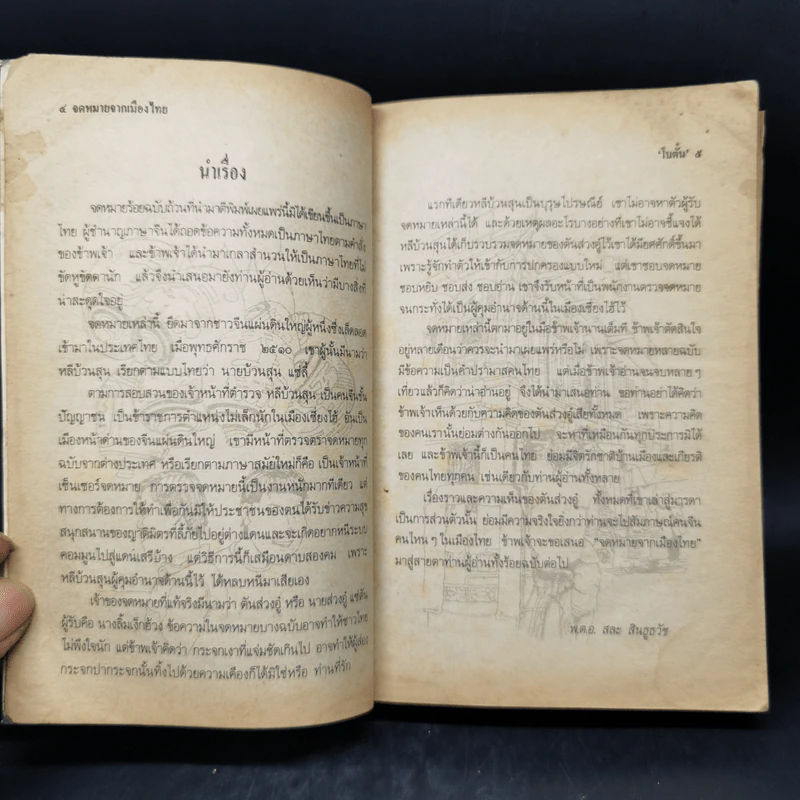 ๔ จดหมายจากเมืองไทย
นำเรื่อง
จดหมายร้อยฉบับถ้วนที่นำมาตีพิมพ์เผยแพร่นี้มิได้เขียนขึ้นเป็นภาษา
ไทย ผู้ชำนาญภาษาจีนได้ถอดข้อความทั้งหมดเป็นภาษาไทยตามคำสั่ง
ของข้าพเจ้า และข้าพเจ้าได้นำมาเกลาสำนวนให้เป็นภาษาไทยที่ไม่
ขัดหูขัดตานัก แล้วจึงนำเสนอมายังท่านผู้อ่านด้วยเห็นว่ามีบางสิ่งที่
น่าสะดุดใจอยู่
จดหมายเหล่านี้ ยึดมาจากชาวจีนแผ่นดินใหญ่ผู้หนึ่งซึ่งเล็ดลอด
เข้ามาในประเทศไทย เมื่อพุทธศักราช ๒๕๑๐ เขาผู้นั้นมีนามว่า
หลีบ้วนสุน เรียกตามแบบไทยว่า นายบ้วนสุน แซ่ลี้
ตามการสอบสวนของเจ้าหน้าที่ตำรวจ หลีบ้วนสุน เป็นคนจีนชั้น
ปัญญาชน เป็นข้าราชการตำแหน่งไม่เล็กนักในเมืองเซี่ยงไฮ้ อันเป็น
เมืองหน้าด่านของจีนแผ่นดินใหญ่ เขามีหน้าที่ตรวจตราจดหมายทุก
ฉบับจากต่างประเทศ หรือเรียกตามภาษาสมัยใหม่ก็คือ เป็นเจ้าหน้าที่
เซ็นเซอร์จดหมาย การตรวจจดหมายนี้เป็นงานหนักมากทีเดียว แต่
ทางการต้องการให้ทำเพื่อกันมิให้ประชาชนของตนได้รับข่าวความสุข
สนุกสนานของญาติมิตรที่ลี้ภัยไปอยู่ต่างแดนและจะเกิดอยากหนีระบบ
คอมมูนไปสู่แดนเสรีบ้าง แต่วิธีการนี้ก็เสมือนดาบสองคม เพราะ
หลีบ้วนสุนผู้คุมอำนาจด้านนี้ไว้ ได้หลบหนีมาเสียเอง
เจ้าของจดหมายที่แท้จริงมีนามว่า ตันส่วงอู๋ หรือ นายส่วงอู๋ แซ่ตัน
ผู้รับคือ นางลิ้มเจ็กฮ้วง ข้อความในจดหมายบางฉบับอาจทำให้ชาวไทย
ไม่พึงใจนัก แต่ข้าพเจ้าคิดว่า กระจกเงาที่แจ่มชัดเกินไป อาจทำให้ผู้ส่อง
กระจกปากระจกนั้นทิ้งไปด้วยความเคืองก็ได้มิใช่หรือ ท่านที่รัก
'โบตั๋น' ๕
แรกทีเดียวหลีบ้วนสุนเป็นบุรุษไปรษณีย์ เขาไม่อาจหาตัวผู้รับ
จดหมายเหล่านี้ได้ และด้วยเหตุผลอะไรบางอย่างที่เขาไม่อาจชี้แจงได้
หลีบ้วนสุนได้เก็บรวบรวมจดหมายของตันส่วงอู๋ไว้ เขาได้มียศศักดิ์ขึ้นมา
เพราะรู้จักทำตัวให้เข้ากับการปกครองแบบใหม่ แต่เขาชอบจดหมาย
ชอบหยิบ ชอบส่ง ชอบอ่าน เขาจึงรับหน้าที่เป็นพนักงานตรวจจดหมาย
จนกระทั่งได้เป็นผู้คุมอำนาจด้านนี้ในเมืองเซี่ยงไฮ้ไว้
จดหมายเหล่านี้ตกมาอยู่ในมือข้าพเจ้านานเต็มที ข้าพเจ้าตัดสินใจ
อยู่หลายเดือนว่าควรจะนำมาเผยแพร่หรือไม่ เพราะจดหมายหลายฉบับ
มีข้อความเป็นคำปรามาสคนไทย แต่เมื่อข้าพเจ้าอ่านจนจบหลายๆ
เที่ยวแล้วก็คิดว่าน่าอ่านอยู่ จึงได้นำมาเสนอท่าน ขอท่านอย่าได้คิดว่า
ข้าพเจ้าเห็นด้วยกับความคิดของตันส่วงอู๋เสียทั้งหมด เพราะความคิด
ของคนเรานั้นย่อมต่างกันออกไป จะหาที่เหมือนกันทุกประการมิได้
เลย และข้าพเจ้านี้ก็เป็นคนไทย ย่อมมีจิตรักชาติบ้านเมืองและเกียรติ
ของคนไทยทุกคน เช่นเดียวกับท่านผู้อ่านทั้งหลาย
เรื่องราวและความเห็นของตันส่วงอู๋ ทั้งหมดที่เขาเล่าสู่มารดา
เป็นการส่วนตัวนั้น ย่อมมีความจริงใจยิ่งกว่าท่านจะไปสัมภาษณ์คนจีน
คนไหนๆ ในเมืองไทย ข้าพเจ้าจะขอเสนอ "จดหมายจากเมืองไทย"
มาสู่สายตาท่านผู้อ่านทั้งร้อยฉบับต่อไป
พ.ต.อ. สละ สินธูธวัช